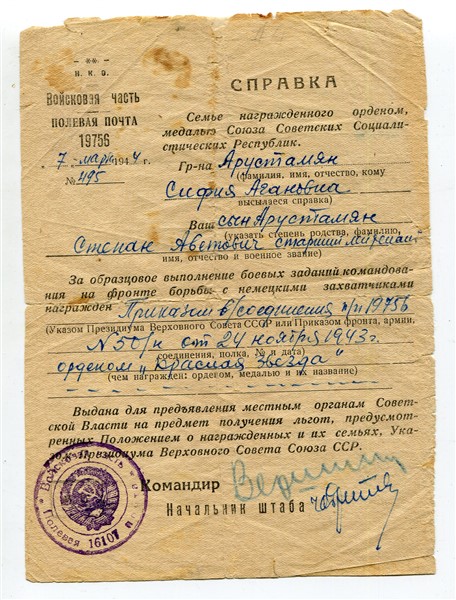 — ** —
Н. К. О.
Войсковая часть
ПОЛЕВАЯ ПОЧТА
19756
7 марта 1944 г.
№ 495
СПРАВКА
Семье награжденного орденом,
медалью Союза Советских Социали-
стических Республик.
Гр-на Арустамян
(фамилия, имя, отчество, кому
София Агановна
высылается справка)
Ваш сын Арустамян
(указать степень родства, фамилию,
Степан Аветович старший
имя, отчество и военное звание)
За образцовое выполнение боевых заданий командова-
ния на фронте борьбы с немецкими захватчиками
награжден Приказом в/соединения п/п 19756
(Указом Президиума Верховного Совета СССР или Приказом фронта, армии,
№ 50/н от 24 ноября 1943 г.
соединения, полка, № и дата)
орденом „Красная Звезда"
(чем награжден: орденом, медалью и их название)
Выдана для предъявления местным органам Совет-
ской Власти на предмет получения льгот, предусмот-
ренных Положением о награжденных и их семьях, Ука-
зом Президиума Верховного Совета Союза ССР.
Командир
Начальник штаба
Войсковая часть
Полевая 16107